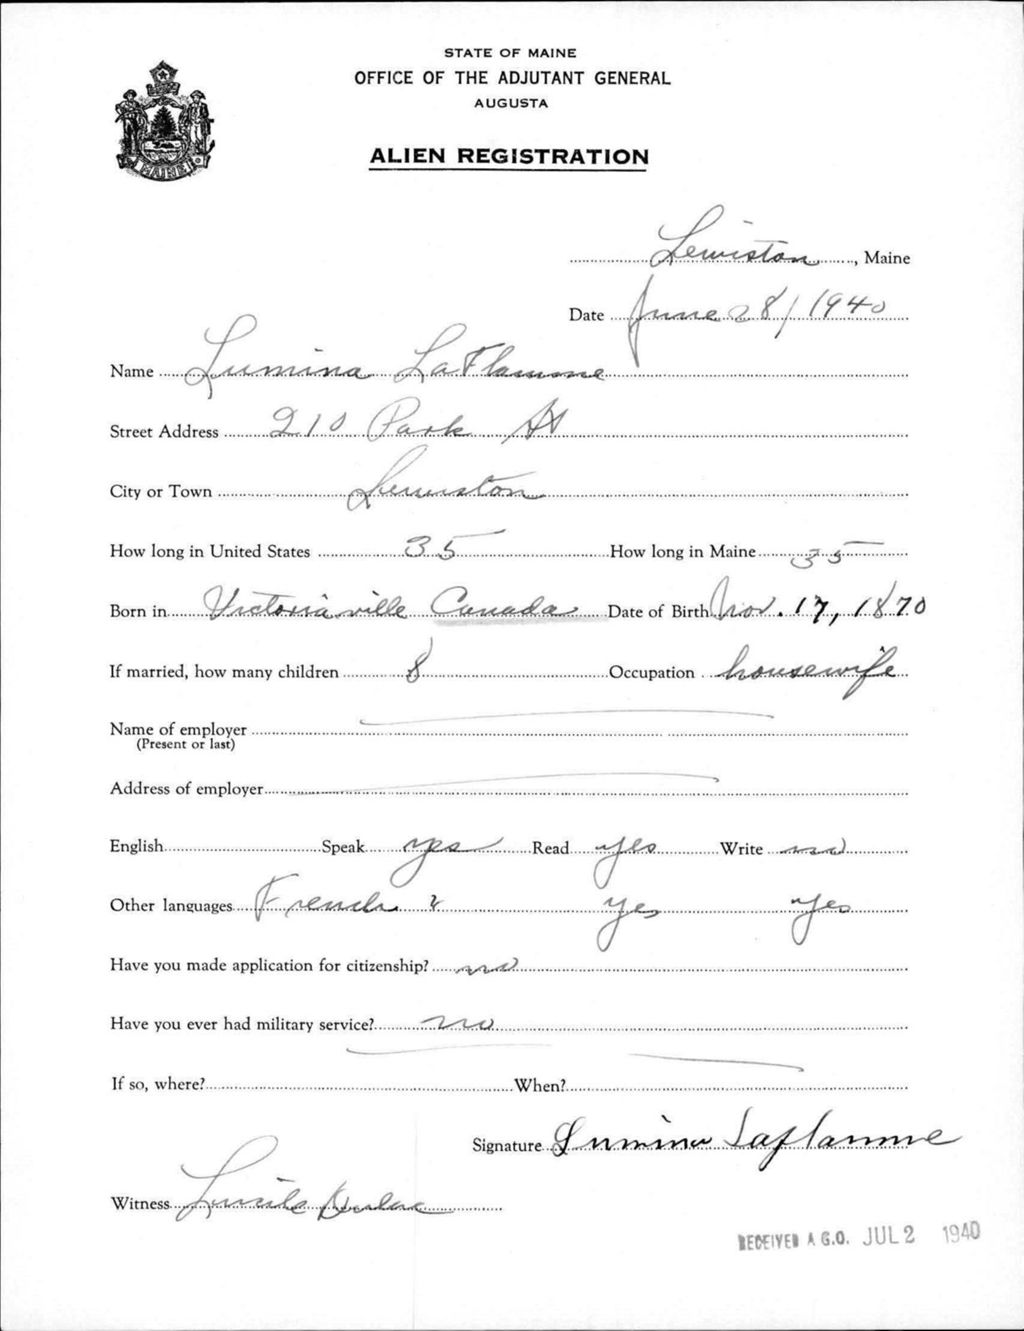 STATE OF MAINE
OFFICE OF THE ADJUTANT GENERAL
AUGUSTA
ALIEN REGISTRATION
MAINE
Lewiston, Maine
Date June 28/1940
Name Lumina LaFlamme
Street Address 210 Park St
City or Town Lewiston
How long in United States 35 How long in Maine 35
Born in Victoriaville Canada Date of Birth Nov. 17, 1870
If married, how many children 8 Occupation housewife
Name of employer
(Present or last)
Address of employer
English Speak yes Read yes Write no
Other languages French yes yes
Have you made application for citizenship? no
Have you ever had military service? no
If so, where? When?
Signature Lumina Laflamme
Witness Lucile Dulac
RECEIVED A.G.O. JUL 2 1940